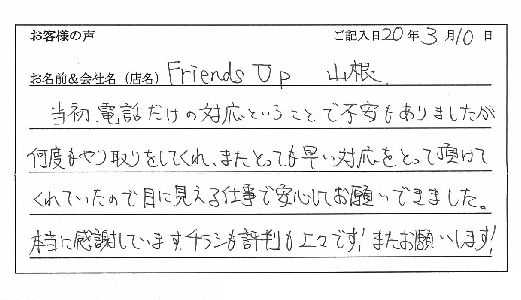 お客様の声 ご記入日20年3月10日
お名前&会社名(店名) Friends Up 山根
当初、電話だけの対応ということで不安もありましたが
何度もやり取りをしてくれ、またとっても早い対応をとって頂けて
くれていたので目に見える仕事で安心してお願いできました。
本当に感謝しています。チラシも評判も上々です!またお願いします!